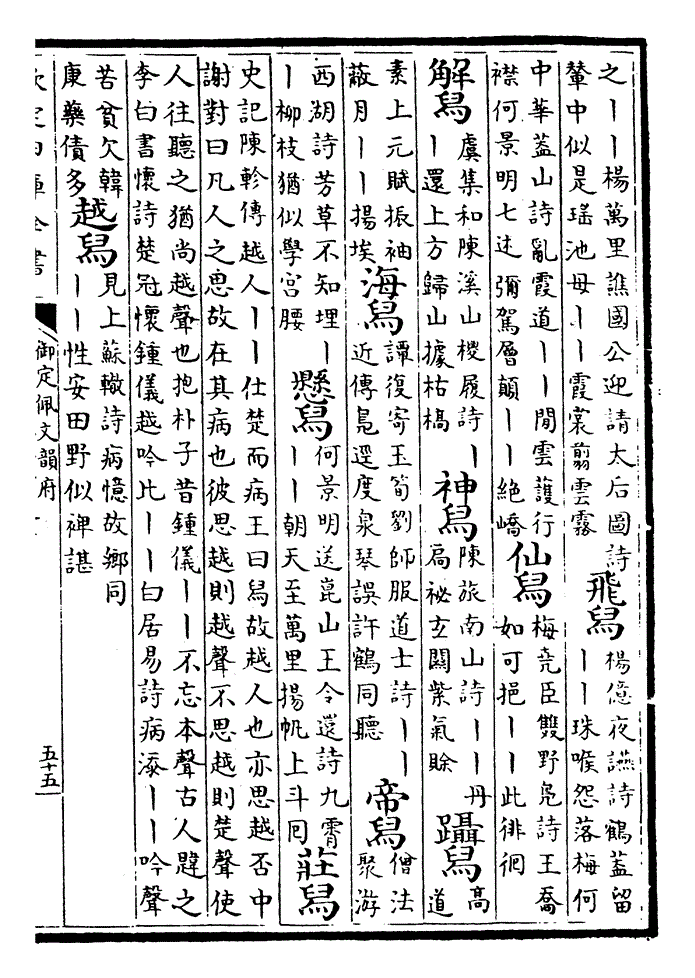 之丨丨楊萬里譙國公迎請太后圖詩
輦中似是瑤池母丨丨霞裳翦雲霧
飛舄
楊億夜讌詩鶴蓋留
丨丨珠喉怨落梅何
中華蓋山詩亂霞道丨丨閒雲護行
襟何景明七述彌駕層顛丨丨絶嶠
仙舄
梅堯臣雙野鳬詩王喬
如可挹丨丨此徘徊
解舄
虞集和陳溪山椶履詩丨
丨還上方歸山據枯槁
神舄
陳旅南山詩丨丨丹
扃祕玄關紫氣賒
躡舄
高
道
素上元賦振袖
蔽月丨丨揚埃
海舄
譚復寄玉笥劉師服道士詩丨丨
近傳鳬遝度泉琴誤許鶴同聽
帝舄
僧法
聚游
西湖詩芳草不知埋丨
丨柳枝猶似學宮腰
懸舄
何景明送崑山王令還詩九霄
丨丨朝天至萬里揚帆上斗囘
莊舄
史記陳軫傳越人丨丨仕楚而病王曰舄故越人也亦思越否中
謝對曰凡人之思故在其病也彼思越則越聲不思越則楚聲使
人往聽之猶尚越聲也抱朴子昔鍾儀丨丨不忘本聲古人韙之
李白書懷詩楚冠懷鍾儀越吟比丨丨白居易詩病添丨丨吟聲
苦貧欠韓
庚藥債多
越舄
見上蘇轍詩病憶故鄉同
丨丨性安田野似裨諶
欽定四庫全書
御定佩文韻府
五十五